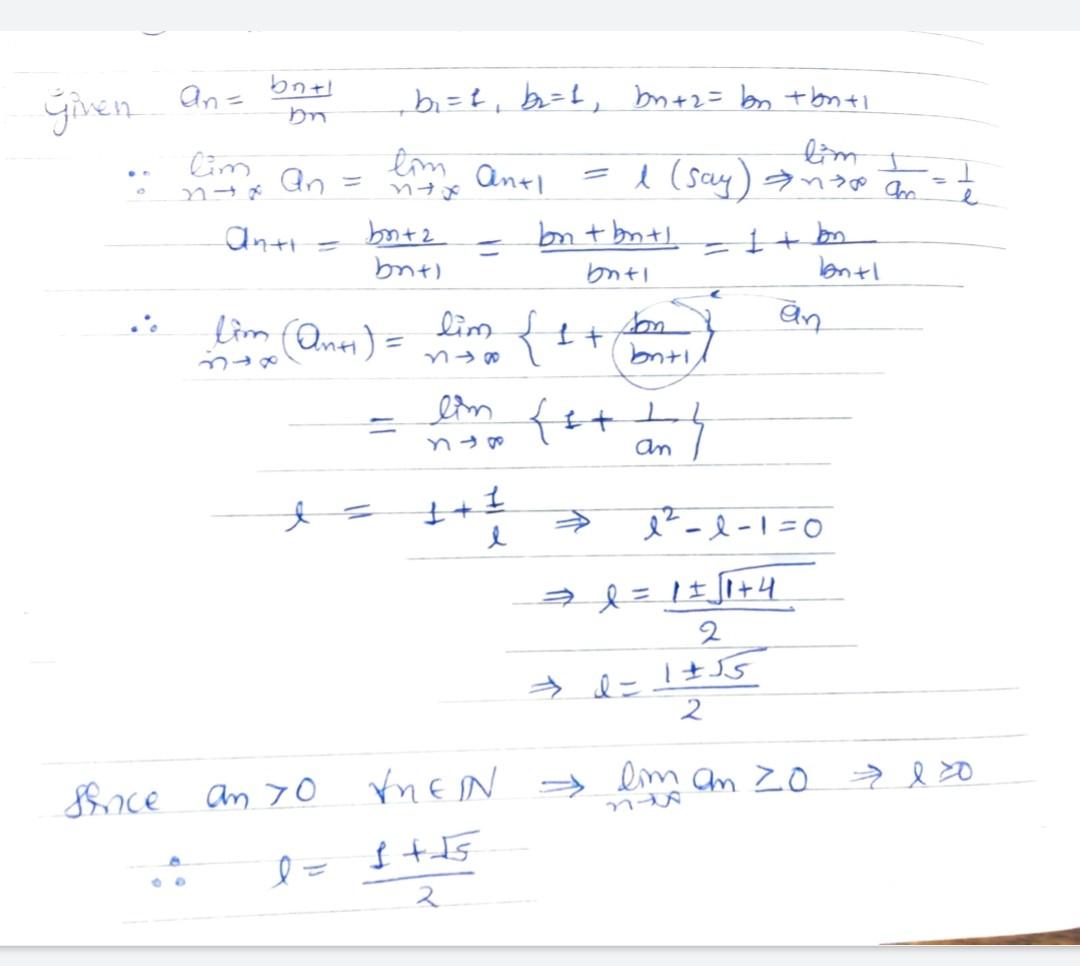 Given an = bn+1/bn , b1=1, b2=1, bn+2 = bn + bn+1
∵ lim n→∞ an = lim n→∞ an+1 = l (say) ⇒ lim n→∞ 1/an = 1/l
an+1 = bn+2/bn+1 = (bn + bn+1)/bn+1 = 1 + bn/bn+1
∴ lim n→∞ (an+1) = lim n→∞ { 1 + bn/bn+1 } an
= lim n→∞ { 1 + 1/an }
l = 1 + 1/l ⇒ l² - l - 1 = 0
⇒ l = (1 ± √1+4)/2
⇒ l = (1 ± √5)/2
Since an > 0 ∀n∈ℕ ⇒ lim n→∞ an ≥ 0 ⇒ l ≥ 0
∴ l = (1 + √5)/2